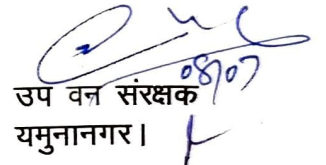 08/07
उप वन संरक्षक
यमुनानगर।